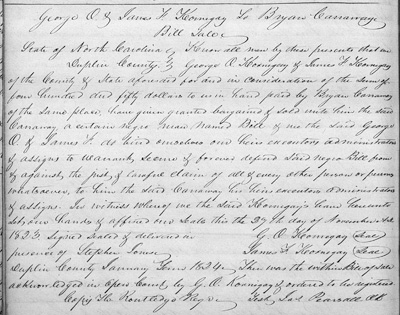 George O & James F Kornegay To Bryan Carraway
Bill Sale
State of North Carolina } Know all men by these presents that we
Duplin County } George O Kornegay & James F Kornegay
of the County & State aforesaid for and in consideration of the sum of
four hundred and fifty dollars to us in hand paid by Bryan Carraway
of the same place have given granted bargained & sold unto him the said
Carraway a certain negro man named Bill & we the said George
O & James F. do bind ourselves our heirs executors administrators
& assigns to warrant, secure & forever defend said negro Bill from
& against the just & lawful claim of all & every other person or persons
whatsoever, to him the said Carraway his heirs executors administrators
& assigns. In witness whereof we the said Kornegay's have hereunto
set our hands & affixed our seals this the 27th day of November A.D.
1833. Signed sealed & delivered in G. O Kornegay (Seal)
presence of Stephen James F. Kornegay (Seal)
Duplin County January Term 1834. Then was the within Bill of sale
acknowledged in Open Court by G. O. Kornegay & ordered to be registered
Copy Tho Routledge Regr Test Jas Pearsall Clk